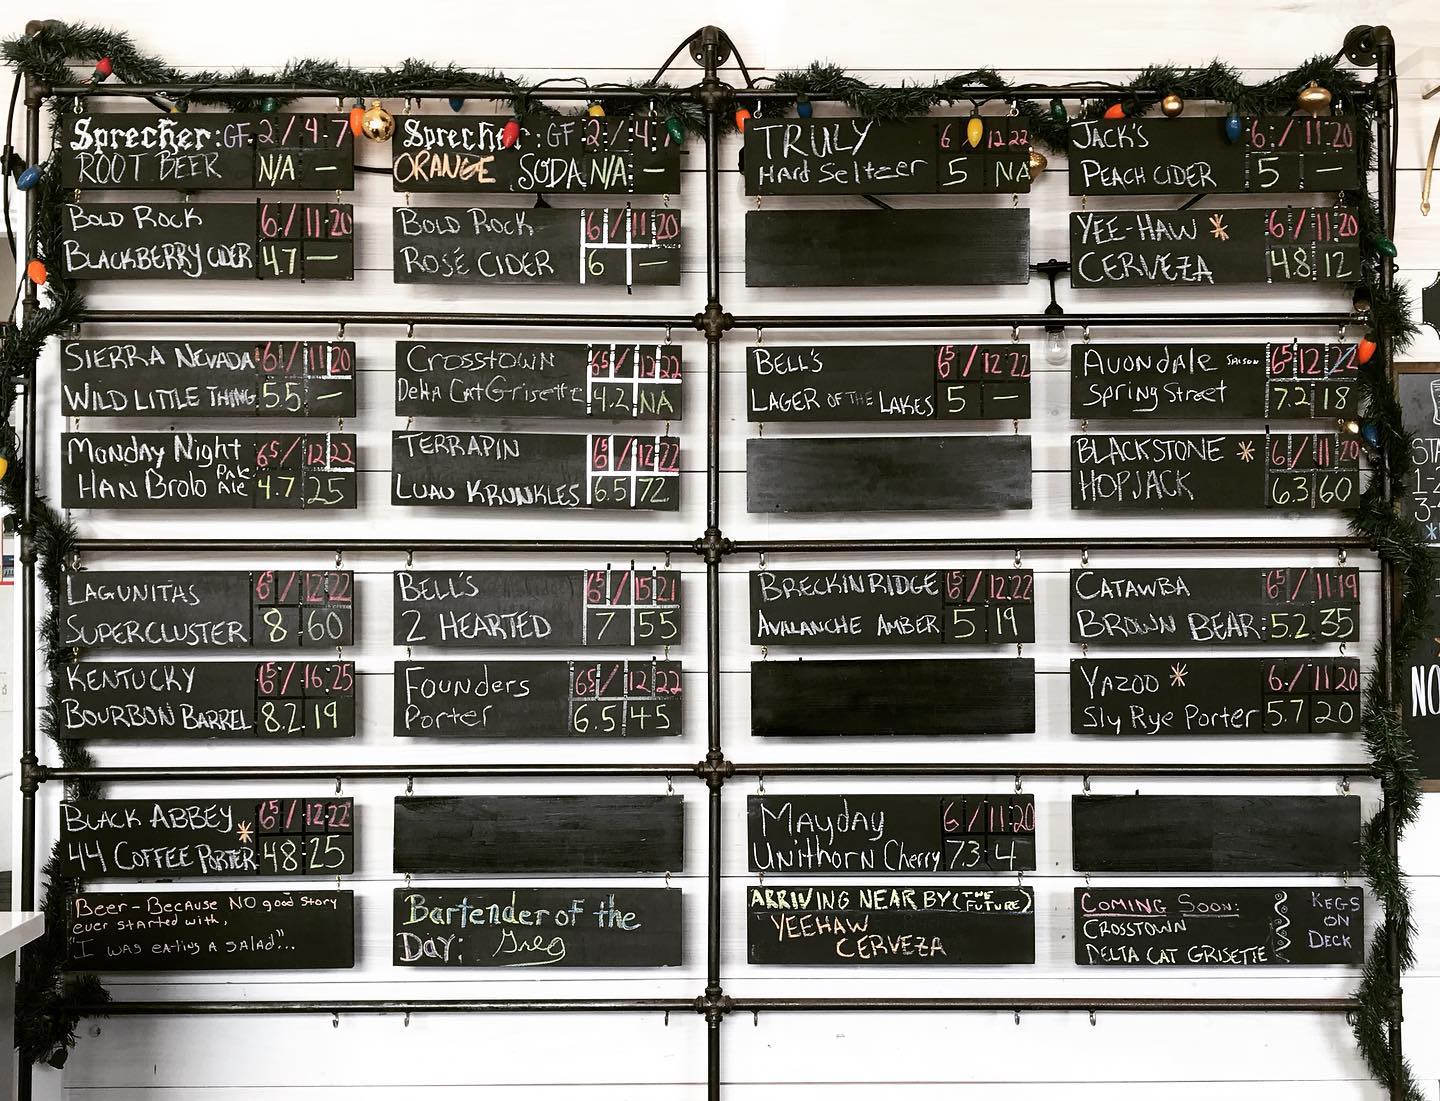 Sprecher: GF 2 / 4 - 7
ROOT BEER N/A —
Sprecher: GF 2 / 4 - 7
ORANGE SODA N/A —
TRULY 6 12 22
Hard Seltzer 5 NA
JACK'S 6 / 11 20
PEACH CIDER 5 —
BOLD ROCK 6 / 11 20
BLACKBERRY CIDER 4.7 —
BOLD ROCK 6 / 11 20
ROSÉ CIDER 6 —
YEE-HAW * 6 / 11 20
CERVEZA 4.8 12
SIERRA NEVADA 6 / 11 20
WILD LITTLE THING 5.5 —
Crosstown 65 / 12 22
Delta Cat Grisette 4.2 NA
BELL'S 65 / 12 22
LAGER OF THE LAKES 5 —
Avondale SAISON 65 12 22
Spring Street 7.2 18
Monday Night 65 / 12 22
HAN Brolo Pale Ale 4.7 25
TERRAPIN 65 / 12 22
LUAU KRUNKLES 6.5 72
BLACKSTONE * 6 / 11 20
HOPJACK 6.3 60
LAGUNITAS 65 / 12 22
SUPERCLUSTER 8 60
BELL'S 65 / 15 21
2 HEARTED 7 55
BRECKINRIDGE 65 / 12 22
AVALANCHE AMBER 5 19
CATAWBA 65 / 11 19
BROWN BEAR 5.2 35
KENTUCKY 65 / 16 25
BOURBON BARREL 8.2 19
Founders 65 / 12 22
Porter 6.5 45
YAZOO * 6 / 11 20
Sly Rye Porter 5.7 20
BLACK ABBEY * 65 / 12 22
44 COFFEE PORTER 48 25
Mayday 6 / 11 20
Unithorn Cherry 73 4
Beer - Because NO good story
ever started with,
"I was eating a salad"...
Bartender of the
DAY: Greg
ARRIVING NEAR BY (THE FUTURE)
YEEHAW
CERVEZA
COMING SOON:
CROSSTOWN
DELTA CAT GRISETTE
KEGS
ON
DECK
STA
1-
3-
NO